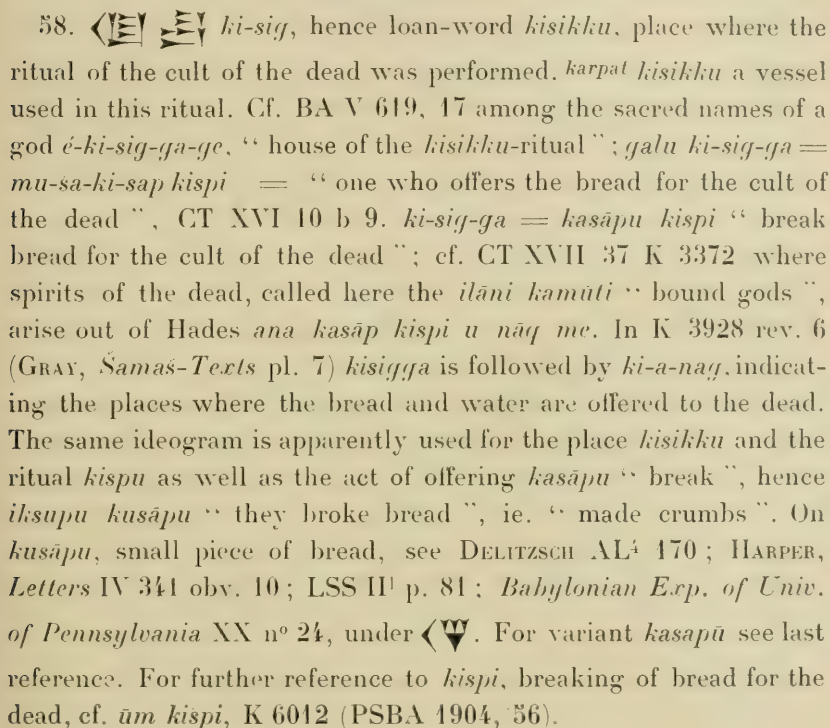 58. 𒆠 𒋝 ki-sig, hence loan-word kisikku, place where the
ritual of the cult of the dead was performed. karpat kisikku a vessel
used in this ritual. Cf. BA V 619, 17 among the sacred names of a
god é-ki-sig-ga-ge, “ house of the kisikku-ritual ”; galu ki-sig-ga =
mu-sa-ki-sap kispi = “ one who offers the bread for the cult of
the dead ”, CT XVI 10 b 9. ki-sig-ga = kasāpu kispi “ break
bread for the cult of the dead ”; cf. CT XVII 37 K 3372 where
spirits of the dead, called here the ilāni kamūti “ bound gods ”,
arise out of Hades ana kasāp kispi u nāq me. In K 3928 rev. 6
(GRAY, Šamaš-Texts pl. 7) kisigga is followed by ki-a-nag, indicat-
ing the places where the bread and water are offered to the dead.
The same ideogram is apparently used for the place kisikku and the
ritual kispu as well as the act of offering kasāpu “ break ”, hence
iksupu kusāpu “ they broke bread ”, ie. “ made crumbs ”. On
kusāpu, small piece of bread, see DELITZSCH AL⁴ 170 ; HARPER,
Letters IV 341 obv. 10 ; LSS II¹ p. 81 ; Babylonian Exp. of Univ.
of Pennsylvania XX nº 24, under. For variant kasapū see last
reference. For further reference to kispi, breaking of bread for the
dead, cf. ūm kispi, K 6012 (PSBA 1904, 56).